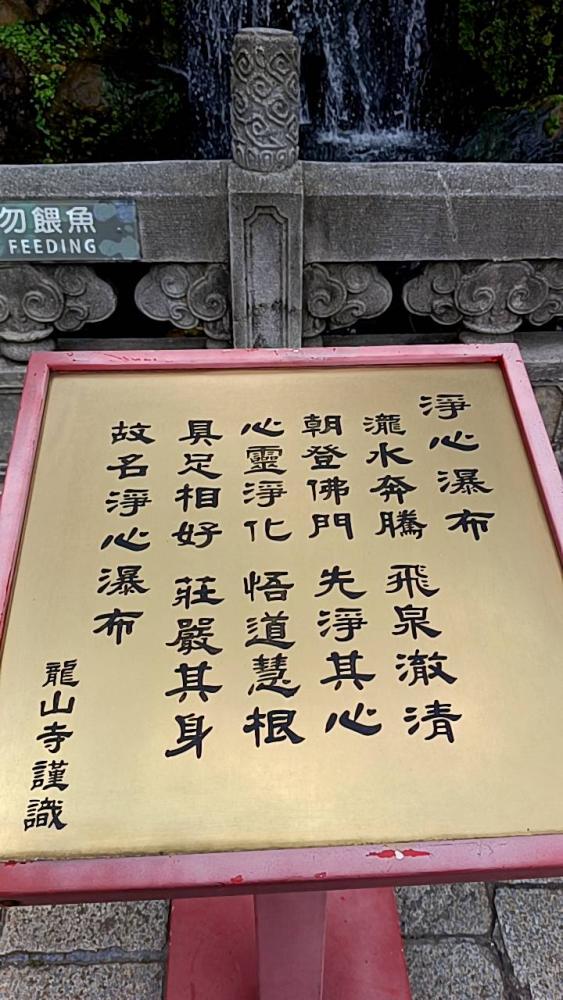 勿餵魚
FEEDING
淨心瀑布
瀧水奔騰 飛泉澈清
朝登佛門 先淨其心
心靈淨化 悟道慧根
具足相好 莊嚴其身
故名淨心瀑布
龍山寺謹識